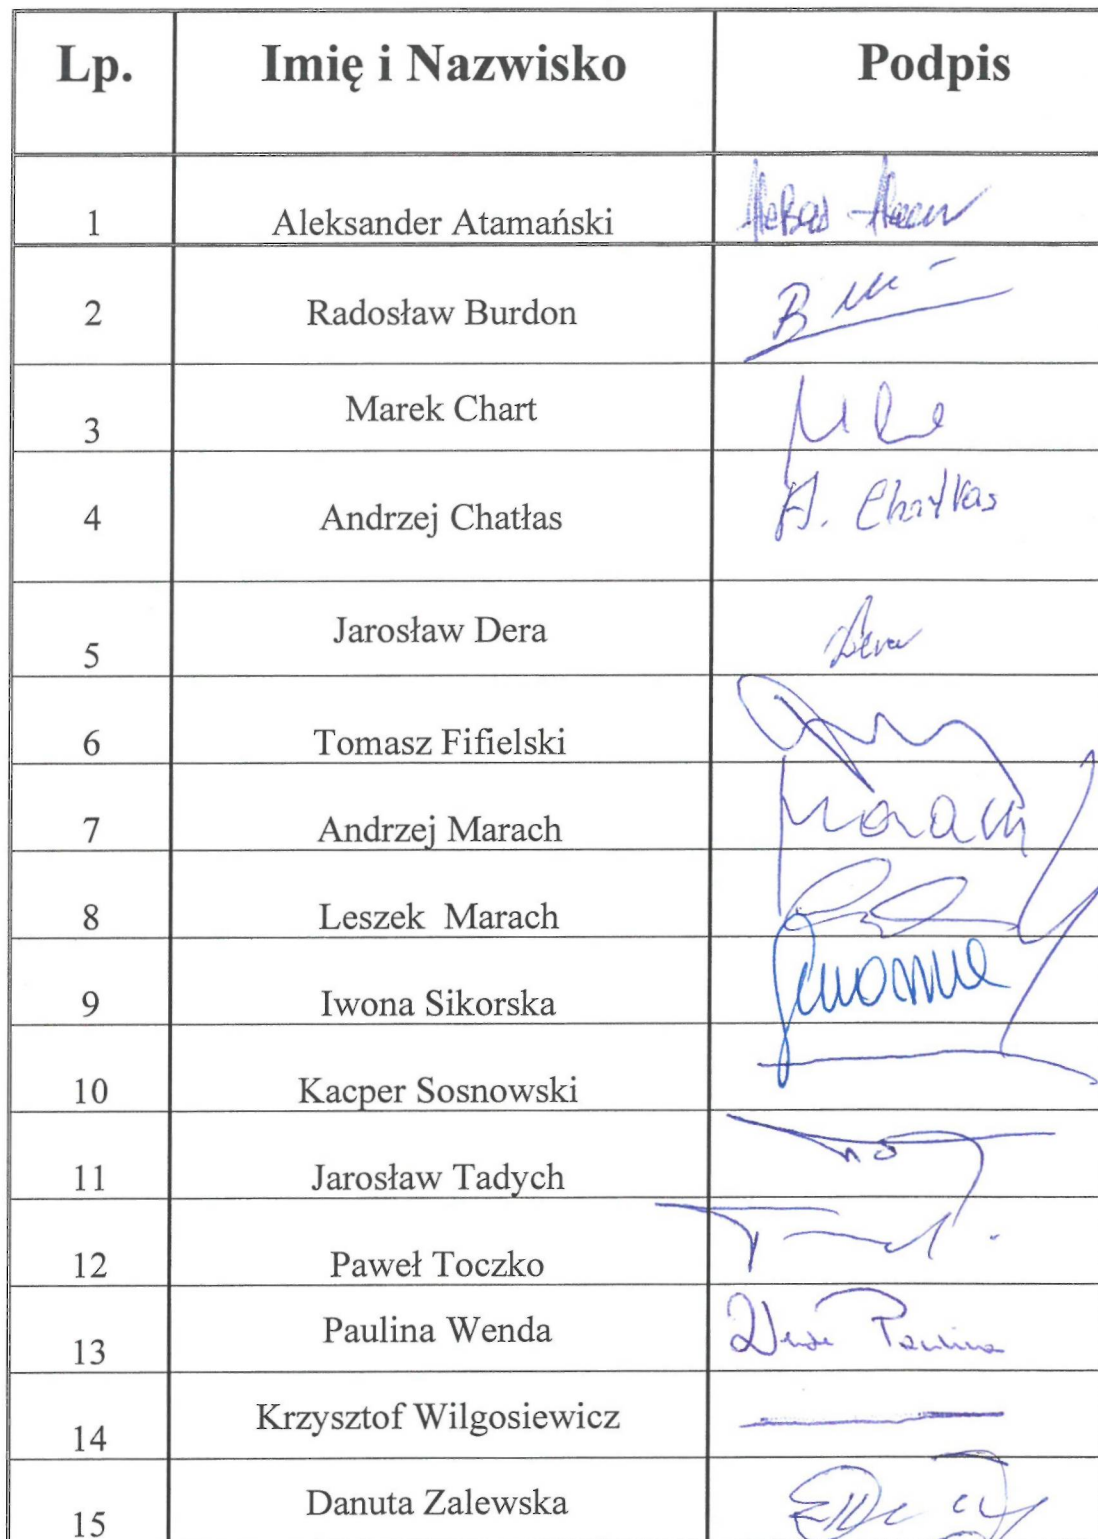 Lp. Imię i Nazwisko Podpis
1 Aleksander Atamański
2 Radosław Burdon
3 Marek Chart
4 Andrzej Chatłas A. Chatłas
5 Jarosław Dera Dera
6 Tomasz Fifielski
7 Andrzej Marach Marach
8 Leszek Marach
9 Iwona Sikorska
10 Kacper Sosnowski
11 Jarosław Tadych
12 Paweł Toczko
13 Paulina Wenda Wenda Paulina
14 Krzysztof Wilgosiewicz
15 Danuta Zalewska